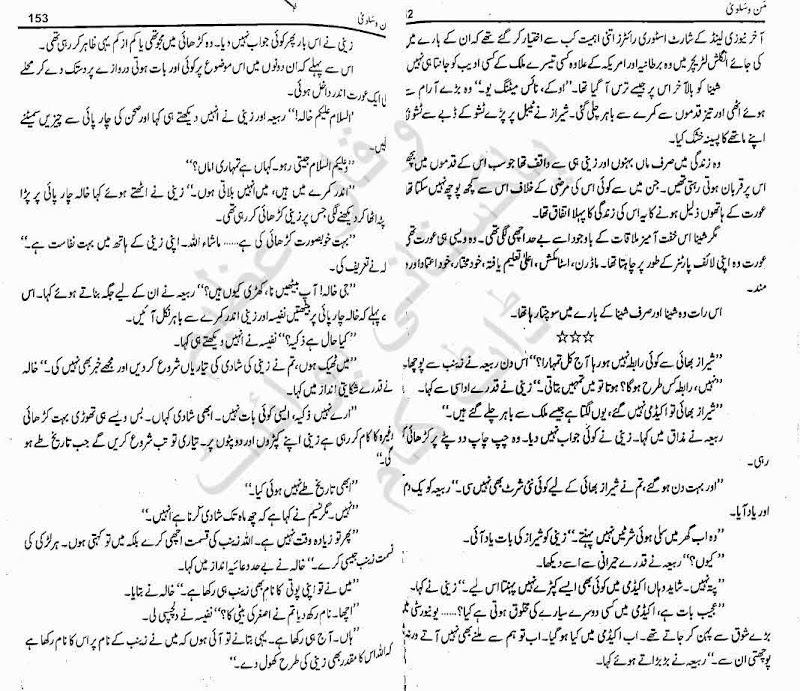 من وسلویٰ
آخر نیوزی لینڈ کے شارٹ اسٹوری رائٹرز اتنی اہمیت کب سے اختیار کر گئے تھے کہ ان کے بارے میں
کی جائے انگلش لٹریچر میں وہ برطانیہ اور امریکہ کے علاوہ کسی تیسرے ملک کے کسی ادیب کو جانتا ہی نہیں
شینا کو بالآخر اس پر جیسے ترس آ گیا تھا۔ ’’اوکے، نائس میٹنگ یو۔‘‘ وہ بڑے آرام سے
ہوئے اٹھی اور تیز قدموں سے کمرے سے باہر چلی گئی۔ شیراز نے ٹیبل پر پڑے ٹشو کے ڈبے سے ٹشو
اپنے ماتھے کا پسینہ خشک کیا۔
وہ زندگی میں صرف ماں بہنوں اور زینی ہی سے واقف تھا جو سب اس کے قدموں میں بچھ
اس پر قربان ہوتی رہتی تھیں۔ جن میں سے کوئی اس کی مرضی کے خلاف اس سے کچھ پوچھ نہیں سکتا تھا
عورت کے ہاتھوں ذلیل ہونے کا یہ اس کی زندگی کا پہلا اتفاق تھا۔
مگر شینا اس خفت آمیز ملاقات کے باوجود اسے بے حد اچھی لگی تھی۔ وہ ویسی ہی عورت تھی
عورت وہ اپنی لائف پارٹنر کے طور پر چاہتا تھا۔ ماڈرن، اسٹائلش، اعلیٰ تعلیم یافتہ، خود مختار، خود اعتماد اور د
مند۔
اس رات وہ شینا اور صرف شینا کے بارے میں سوچتا رہا تھا۔
☆☆☆
’’شیراز بھائی سے کوئی رابطہ نہیں ہو رہا آج کل تمہارا؟‘‘ اس دن ربیعہ نے زینب سے پوچھا۔
’’نہیں، رابطہ کس طرح ہوگا؟ ہوتا تو میں تمہیں بتاتی۔‘‘ زینی نے قدرے اداسی سے کہا۔
’’شیراز بھائی تو اکیڈمی نہیں گئے، یوں لگتا ہے جیسے ملک سے باہر چلے گئے ہیں۔‘‘
ربیعہ نے مذاق میں کہا۔ زینی نے کوئی جواب نہیں دیا۔ وہ چپ چاپ دوپٹے پر کڑھائی
رہی۔
’’اور بہت دن ہو گئے، تم نے شیراز بھائی کے لیے کوئی نئی شرٹ بھی نہیں سی۔‘‘ ربیعہ کو یک دم
اور یاد آیا۔
’’وہ اب گھر میں سلی ہوئی شرٹس نہیں پہنتے۔‘‘ زینی کو شیراز کی بات یاد آئی۔
’’کیوں؟‘‘ ربیعہ نے قدرے حیرانی سے اسے دیکھا۔
’’پتہ نہیں۔ شاید وہاں اکیڈمی میں کوئی بھی ایسے کپڑے نہیں پہنتا اس لیے۔‘‘ زینی نے کہا۔
’’عجیب بات ہے، اکیڈمی میں کسی دوسرے سیارے کی مخلوق ہوتی ہے کیا؟...... یونیورسٹی میں
بڑے شوق سے پہن کر جاتے تھے۔ اب اکیڈمی میں کیا ہو گیا۔ اب تو ہم سے ملنے بھی نہیں آتے ورنہ
پوچھتی ان سے۔‘‘ ربیعہ نے بڑبڑاتے ہوئے کہا۔
153
ن وسلویٰ
زینی نے اس بار پھر کوئی جواب نہیں دیا۔ وہ کڑھائی میں مجو تھی یا کم از کم یہی ظاہر کر رہی تھی۔
اس سے پہلے کہ ان دونوں میں اس موضوع پر کوئی اور بات ہوتی دروازے پر دستک دے کر محلے
لی ایک عورت اندر داخل ہوئی۔
’’السلام علیکم خالہ!‘‘ ربیعہ اور زینی نے انہیں دیکھتے ہی کہا اور صحن کی چارپائی سے چیزیں سمیٹنے
لیں۔
’’وعلیکم السلام جیتی رہو۔ کہاں ہے تمہاری اماں؟‘‘
’’اندر کمرے میں ہیں، میں انہیں بلاتی ہوں۔‘‘ زینی نے اٹھتے ہوئے کہا خالہ چارپائی پر پڑا
پٹہ اٹھا کر دیکھنے لگی جس پر زینی کڑھائی کر رہی تھی۔
’’بہت خوبصورت کڑھائی کی ہے...... ماشاء اللہ۔ اپنی زینی کے ہاتھ میں بہت نفاست ہے۔‘‘
لہ نے تعریف کی۔
’’جی خالہ! آپ بیٹھیں نا، کھڑی کیوں ہیں؟‘‘ ربیعہ نے ان کے لیے جگہ بناتے ہوئے کہا۔ اس
ے پہلے کہ خالہ چارپائی پر بیٹھتیں نفیسہ اور زینی اندر کمرے سے باہر نکل آئیں۔
’’کیا حال ہے ذکیہ؟‘‘ نفیسہ نے انہیں دیکھتے ہی کہا۔
’’میں ٹھیک ہوں، تم نے زینی کی شادی کی تیاریاں شروع کر دیں اور مجھے خبر بھی نہیں کی۔‘‘ خالہ
نے قدرے شکایتی انداز میں کہا۔
’’ارے نہیں ذکیہ، ایسی کوئی بات نہیں۔ ابھی شادی کہاں۔ بس ویسے ہی تھوڑی بہت کڑھائی
وغیرہ کا کام کر رہی ہے زینی اپنے کپڑوں اور دوپٹوں پر۔ تیاری تو تب شروع کریں گے جب تاریخ طے ہو
گی۔‘‘
’’ابھی تاریخ طے نہیں ہوئی کیا۔‘‘
’’نہیں۔ مگر نسیم نے کہا ہے کہ چھ ماہ تک شادی کرنا ہے انہیں۔‘‘
’’پھر تو زیادہ وقت نہیں ہے۔ اللہ زینب کی قسمت اچھی کرے بلکہ میں تو کہتی ہوں۔ ہر لڑکی کی
قسمت زینب جیسی کرے۔‘‘ خالہ نے بے حد دعائیہ انداز میں کہا۔
’’میں نے تو اپنی پوتی کا نام بھی زینب ہی رکھا ہے۔‘‘ خالہ نے بتایا۔
’’اچھا۔ نام رکھ دیا تم نے اصغر کی بیٹی کا؟‘‘ نفیسہ نے دلچسپی لی۔
’’ہاں۔ آج ہی رکھا ہے۔ یہی بتانے تو آئی ہوں کہ میں نے زینب کے نام پر اس کا نام رکھا ہے
کہ اللہ اس کا مقدر بھی زینی کی طرح کھول دے۔‘‘